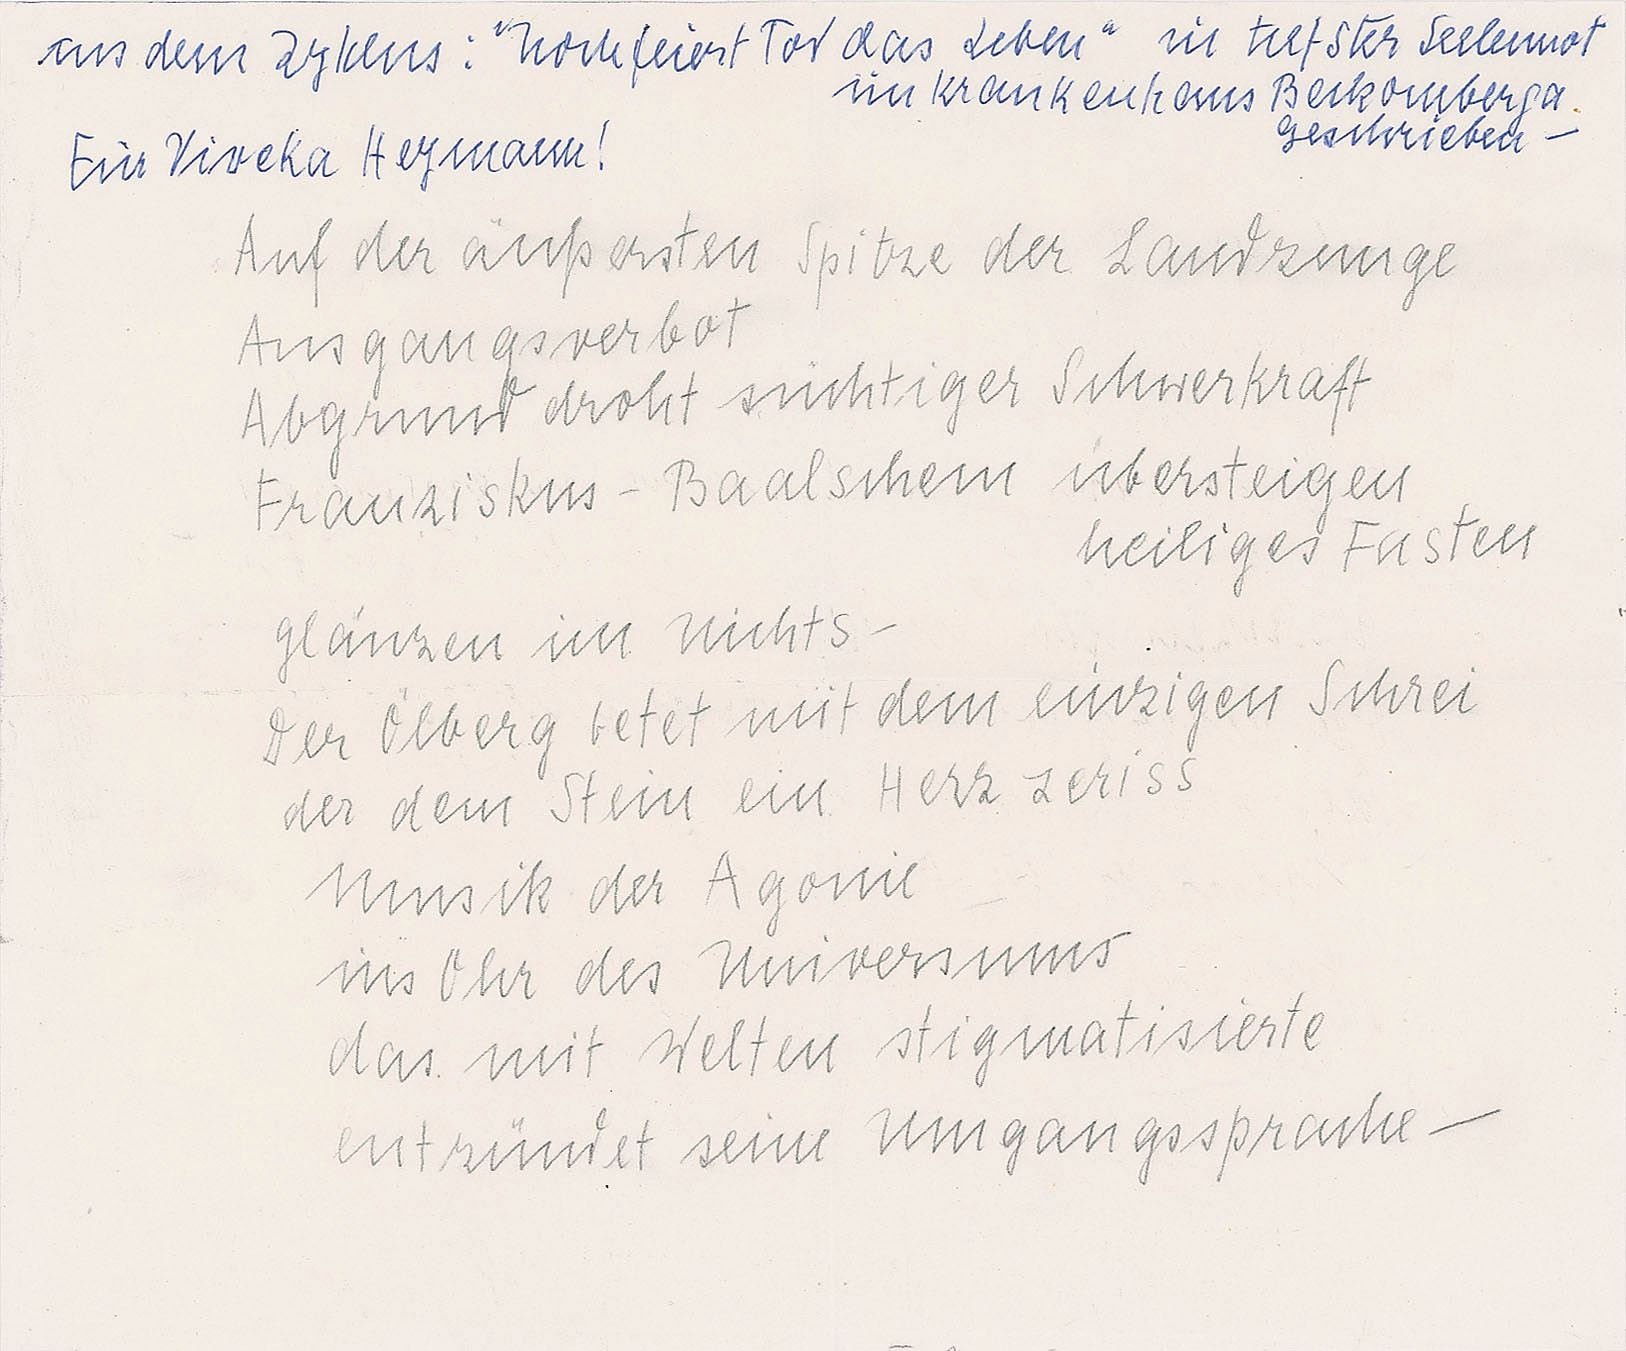 aus dem Zyklus: "Noch feiert Tod das Leben" in tiefster Seelennot
im Krankenhaus Beckomberga
geschrieben —
Für Viveka Heymann!
Auf der äußersten Spitze der Landzunge
Ausgangsverbot
Abgrund droht süchtiger Schwerkraft
Franziskus - Baalschem übersteigen
heiliges Fasten
glänzen im Nichts -
Der Ölberg betet mit dem einzigen Schrei
der dem Stein ein Herz zeriss
Musik der Agonie
ins Ohr des Universums
das mit Welten stigmatisierte
entzündet seine Umgangssprache —